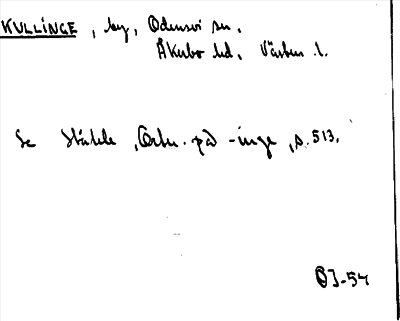 KULLINGE, by, Odensvi sn.
Åkerbo hd. Västm l.
Se Ståhle, Ortn. på -inge, s. 513.
OJ-54